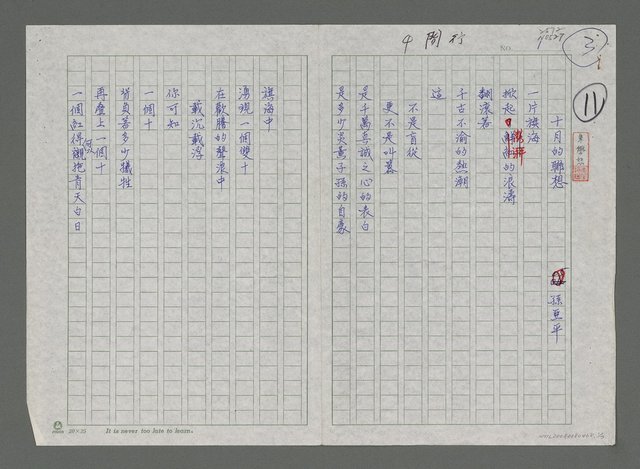 4 間行
NO.
3
11
十月的聯想
孫亘平
一片旗海
掀起的浪濤
翻滾著
千古不渝的熱潮
這
不是盲從
更不是叫囂
是千萬赤誠之心的表白
是多少炎黃子孫的自豪
旗海中
湧現一個雙十
在歡騰的聲浪中
載沉載浮
你可知
一個十
背負著多少犧牲
再疊上一個十
一個紅得擁抱青天白日
20×25 It is never too late to learn.